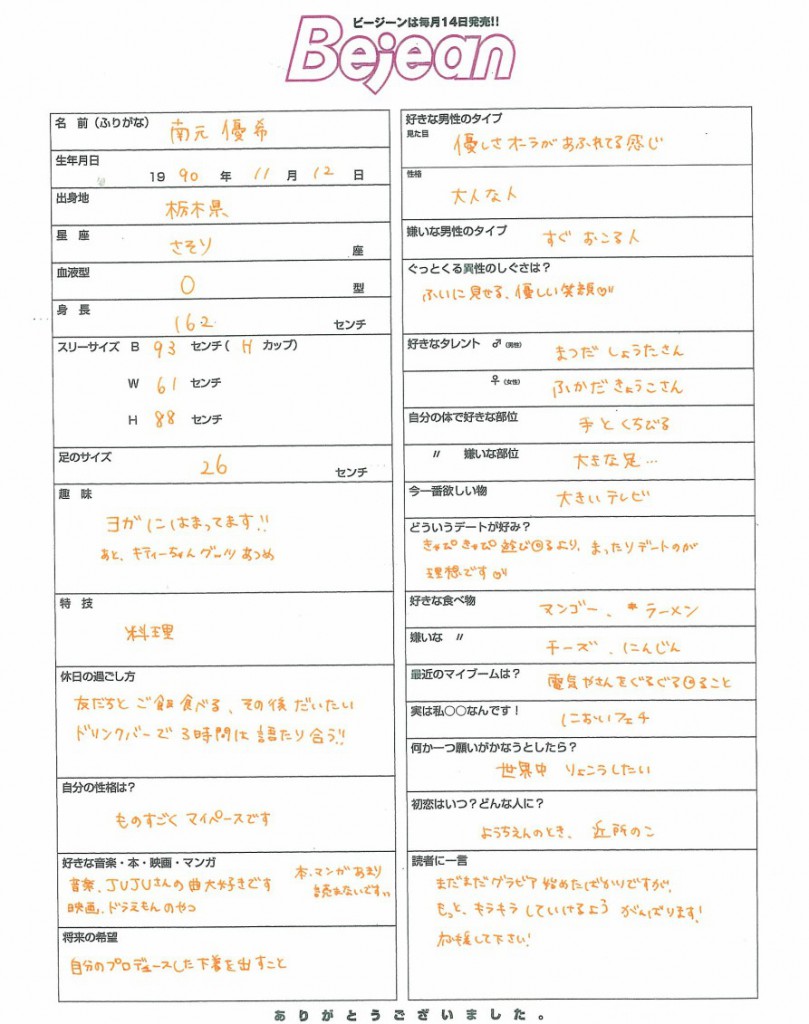 ビージーンは毎月14日発売!!
Bejean
名 前(ふりがな) 南元 優希
生年月日
19 90 年 11 月 12 日
出身地 栃木県
星 座 さそり 座
血液型 O 型
身 長 162 センチ
スリーサイズ B 93 センチ( H カップ)
W 61 センチ
H 88 センチ
足のサイズ 26 センチ
趣 味
ヨガにはまってます!!
あと、キティーちゃんグッツあつめ
特 技
料理
休日の過ごし方
友だちとご飯食べる、その後だいたい
ドリンクバーで3時間は語たり合う!!
自分の性格は?
ものすごくマイペースです
好きな音楽・本・映画・マンガ
音楽、JUJUさんの曲大好きです
映画、ドラえもんのやつ
本、マンガあまり
読まないです、、
将来の希望
自分のプロデュースした下着を出すこと
好きな男性のタイプ
見た目 優しさオーラがあふれてる感じ
性格
大人な人
嫌いな男性のタイプ すぐおこる人
ぐっとくる異性のしぐさは?
ふいに見せる、優しい笑顔♡
好きなタレント ♂(男性) まつだしょうたさん
♀(女性) ふかだきょうこさん
自分の体で好きな部位 手とくちびる
〃 嫌いな部位 大きな足…
今一番欲しい物 大きいテレビ
どういうデートが好み?
きゃぴきゃぴ遊び回るより、まったりデートのが
理想です♡
好きな食べ物 マンゴー、ラーメン
嫌いな 〃 チーズ、にんじん
最近のマイブームは? 電気やさんをぐるぐる回ること
実は私○○なんです! においフェチ
何か一つ願いがかなうとしたら?
世界中りょこうしたい
初恋はいつ?どんな人に?
ようちえんのとき、近所のこ
読者に一言
まだまだグラビア始めたばかりですが、
もっと、キラキラしていけるようがんばります!
応援して下さい!
ありがとうございました。